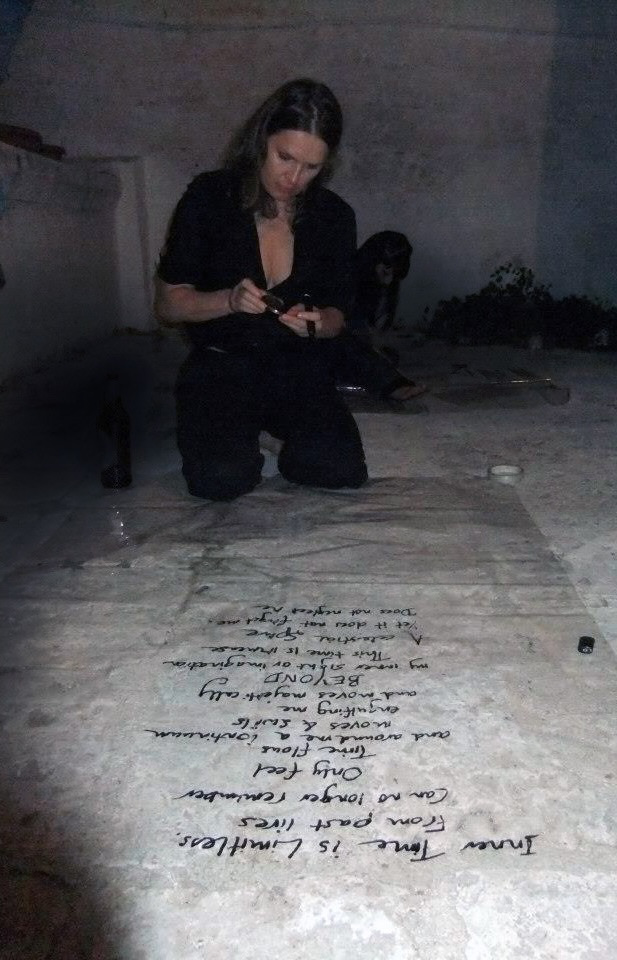 Inner Time is Limitless.
From past lives
Can no longer remember
Only feel
Time flows
and around me a continuum
moves & swirls
engulfing me
and moves majestically
BEYOND
my inner sight or imagination
This time is immense
A celestial
Yet it does not forget me.
Does not neglect me